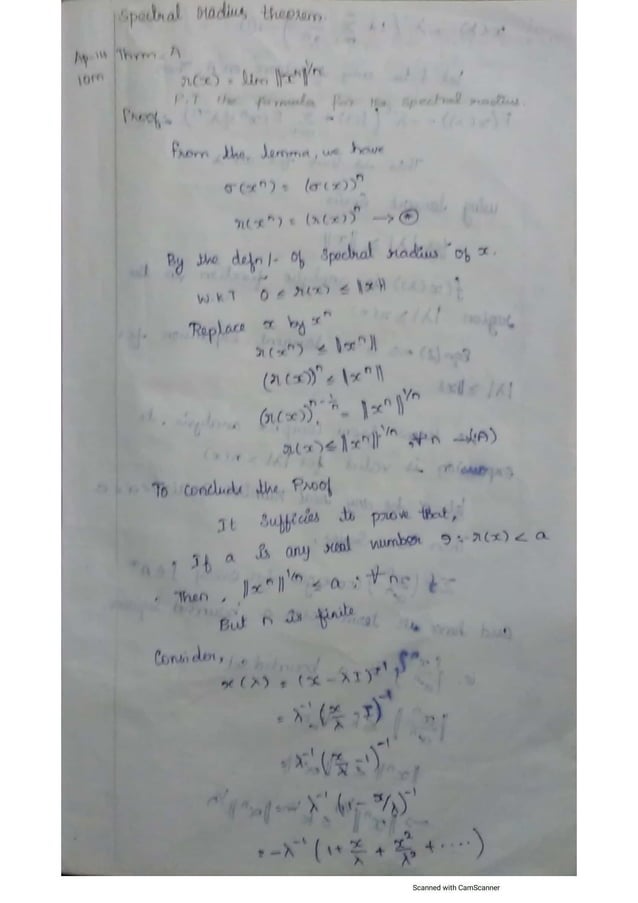 Spectral radius theorem
Ap-111 Thrm. A
10m
r(x) = lim ‖xⁿ‖^1/n
P.T the formula for the spectral radius.
Proof:
From the lemma, we have
σ(xⁿ) = (σ(x))ⁿ
r(xⁿ) = (r(x))ⁿ → ⊛
By the defn/- of spectral radius of x.
W.K.T 0 ≤ r(x) ≤ ‖x‖
Replace x by xⁿ
r(xⁿ) ≤ ‖xⁿ‖
(r(x))ⁿ ≤ ‖xⁿ‖
(r(x))^n·1/n = ‖xⁿ‖^1/n
r(x) ≤ ‖xⁿ‖^1/n, ∀ n → (A)
To conclude the Proof
It sufficies to prove that,
If a is any real number ∋: r(x) < a
Then, ‖xⁿ‖^1/n ≤ a ; ∀ n
But n is finite
Consider,
x(λ) = (x - λI)⁻¹
= λ⁻¹ (x/λ - I)⁻¹
= λ⁻¹ (x/λ - 1)⁻¹
= - λ⁻¹ (1 - x/λ)⁻¹
= -λ⁻¹ (1 + x/λ + x²/λ² + ....)
Scanned with CamScanner